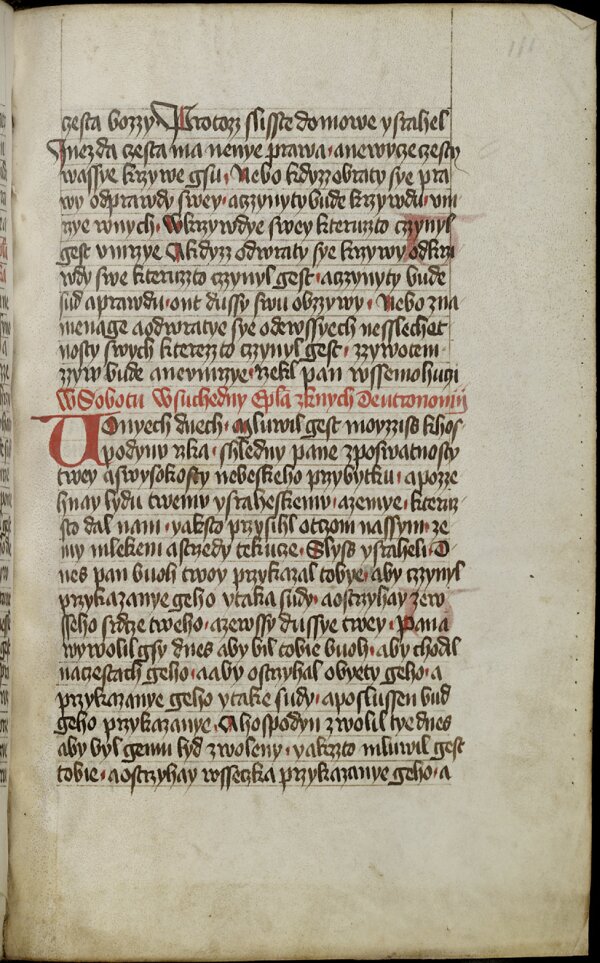 czesta bozzy Protozz slisste domowe ysrahel
Znezda czesta ma nenye prawa anewycze czesty
wassye krzywe gsu Nebo kdyzz obraty sye pra
wy odprawdy swey aczzynyty bude krzywdu um
rzye wnych Wkrzywdye swey kteruzto czzynyl
gest umrzye Akdyzz odwraty sye krzywy odkrzi
wdy swe kteruzto czzynyl gest aczzynyty bude
sud aprawdu ont dussy swu obzzywy Nebo zna
menage aodwratye sye odewssyech nesslechet
nosty swych kterezzto czzynyl gest zzywotem
zzyw bude aneumrzye rzekl pan wssemohuczi
WSobotu Wsuchedny Epla zknych Deutronomij
Vonyech dnech mluwil gest moyzziss khos
podynu rzka shledny pane zposwatnosty
twey aswysokosty nebeskeho przybytku apozze
hnay lydu twemu ysraheskemu azemye kteruz
sto dal nam yaksto przysihl otczom nassym ze
my mlekem astrzedy tekucze Slyss ysraheli D
nes pan buoh twoy przykazal tobye aby czzynyl
przykazanye geho ytaka sudy aostrzyhay zew
sseho srdcze tweho azewssy dussye twey Pana
wywolil gsy dnes aby bil tobie buoh aby chodil
naczestach geho aaby ostrzyhal obyety geho a
przykazanye geho ytake sudy aposlussen bud
geho przykazanye Ahospodyn zwolil tye dnes
aby byl gemu lyd zwoleny yakzzto mluwil gest
tobie aostrzyhay wsseczka przykazanye geho a